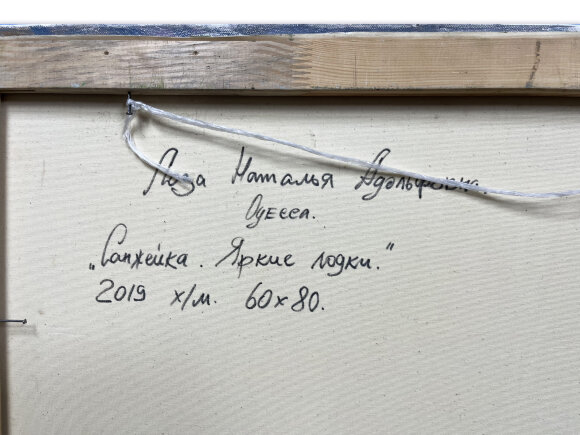 Лоза Наталья Адольфовна.
Одесса.
„Санжейка. Яркие лодки."
2019 х/м. 60х80.